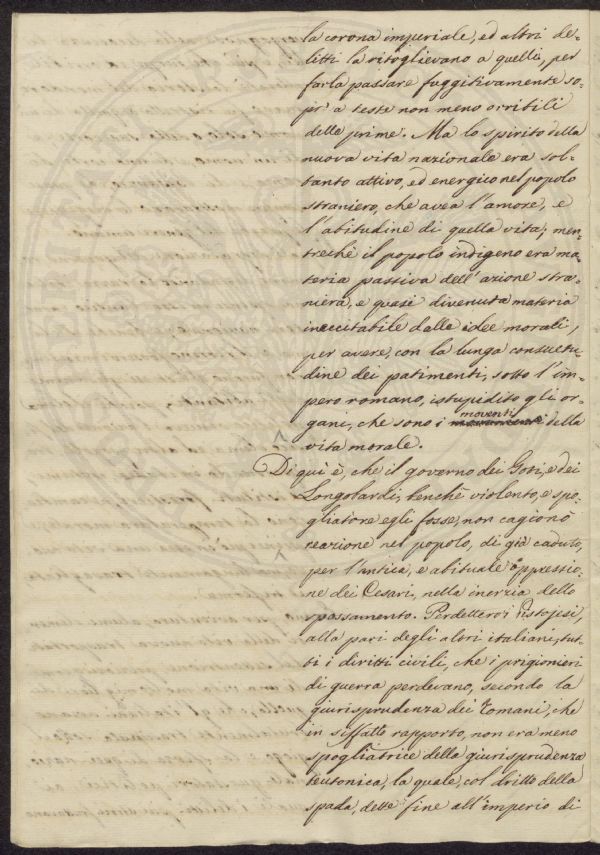 la corona imperiale, ed altri de-
litti la ritoglievano a quelli, per
farla passare fuggitivamente so-
pr' a teste non meno orribili
delle prime. Ma lo spirito della
nuova vita nazionale era sol-
tanto attivo, ed energico nel popolo
straniero, che avea l'amore, e
l'abitudine di quella vita; men-
trechè il popolo indigeno era ma-
teria passiva dell'azione stra-
niera, e quasi divenuta materia
ineccitabile dalle idee morali,
per avere, con la lunga consuetu-
dine dei patimenti, sotto l'im-
pero romano, istupidito gli or-
gani, che sono i moventi della
vita morale.
Di quì è, che il governo dei Goti, e dei
Longobardi, benchè violento, e spo-
gliatore egli fosse, non cagionò
reazione nel popolo, di già caduto,
per l'antica, e abituale oppressio-
ne dei Cesari, nella inerzia dello
spossamento. Perdettero i Pistojesi,
alla pari degli altri italiani, tut-
ti i diritti civili, che i prigionieri
di guerra perdevano, secondo la
giurisprudenza dei Romani, che
in siffatto rapporto, non era meno
spogliatrice della giurisprudenza
teutonica, la quale, col dritto della
spada, dette fine all'imperio di